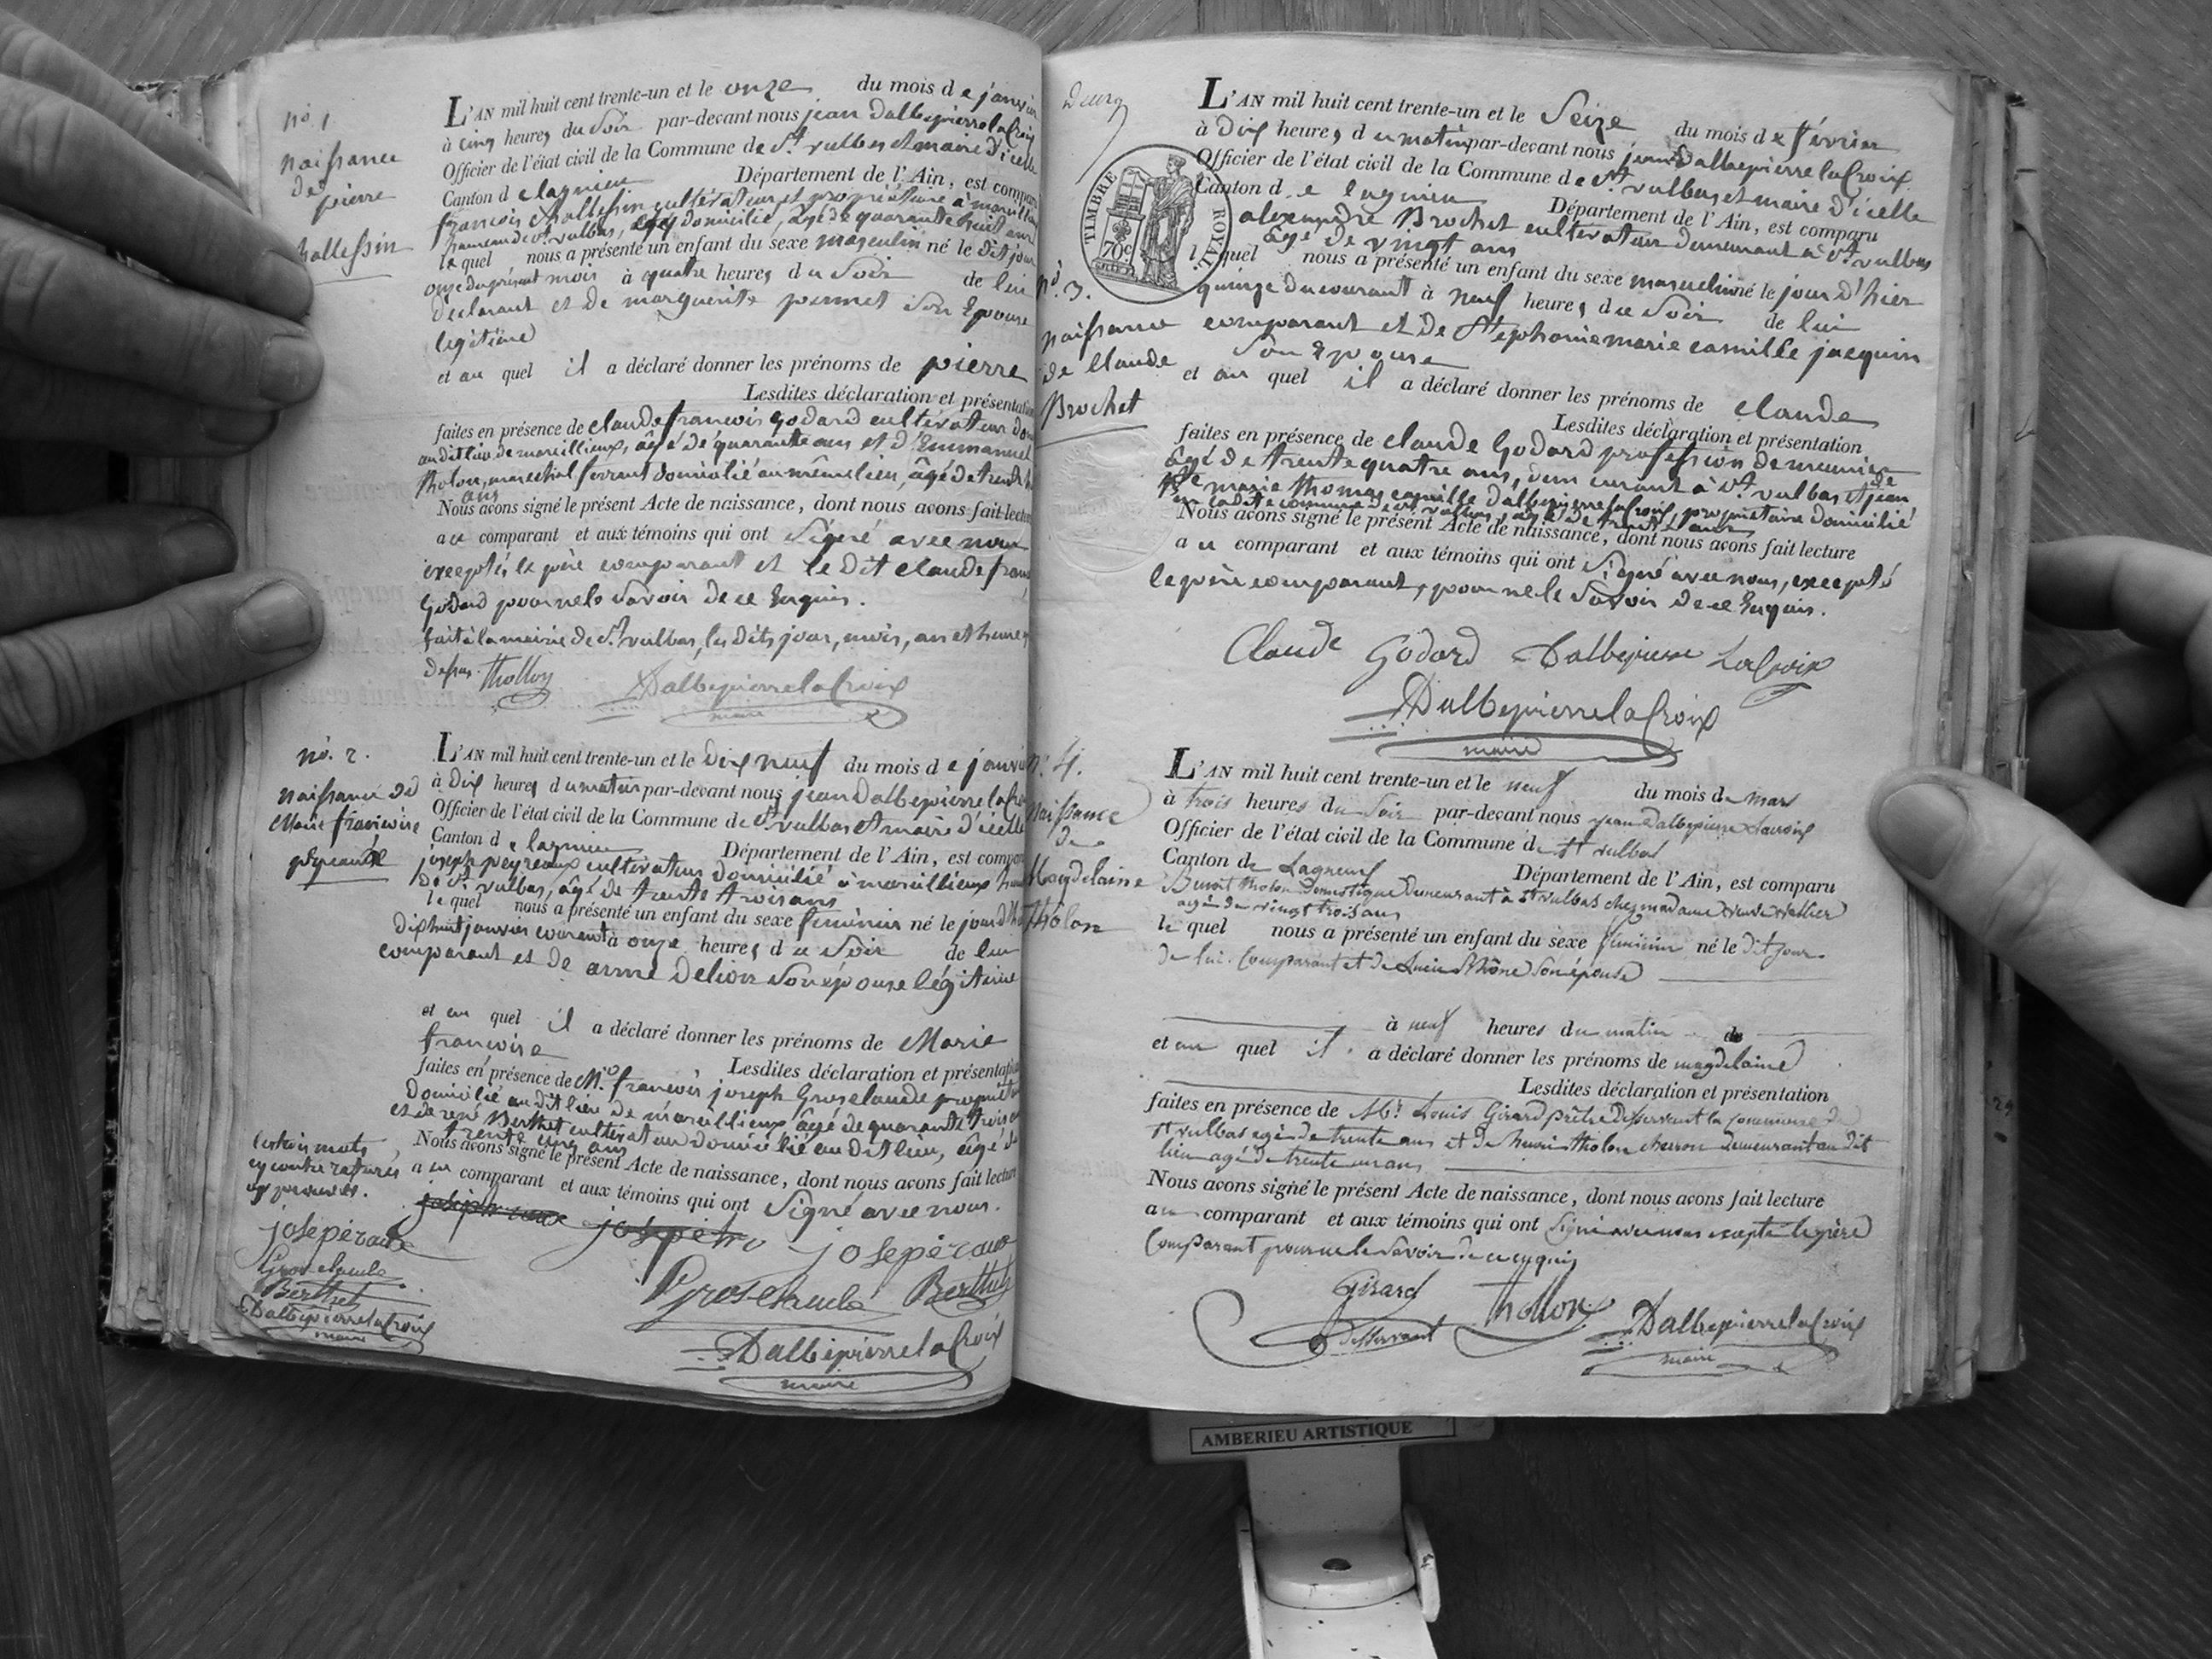 no. 1
naissance
de
pierre
hollessin
L'AN mil huit cent trente-un et le onze du mois de janvier
à cinq heures du soir par-devant nous jean Dalbepierrelacroix
Officier de l'état civil de la Commune de St. vulbas et maire d'icelle
Canton de lagnieu Département de l'Ain, est comparu
françois chollessin cultivateur et propriétaire à marcillieux
hameau de st. vulbas, domicilié, âgé de quarante huit ans
lequel nous a présenté un enfant du sexe masculin né le dit jour
onze du présent mois à quatre heures du soir de lui
déclarant et de marguerite permet son Epouse
legitime
et au quel il a déclaré donner les prénoms de pierre
Lesdites déclaration et présentation
faites en présence de claude françois Godard cultivateur
au dit lieu de marcillieux, âgé de quarante ans et d'Emmanuel
tholon, marechal ferrant domicilié au même lieu, âgé de trente
ans
Nous avons signé le présent Acte de naissance, dont nous avons fait lecture
au comparant et aux témoins qui ont signé avec nous
excepté, le père comparant et le dit claude françois
Godard pour ne le savoir de ce Enquis.
fait à la mairie de St. vulbas, les dits jour, mois, an et heure
dessus. tholloy Dalbepierrelacroix
maire
no. 2.
naissance de
Marie françoise
L'AN mil huit cent trente-un et le dix neuf du mois de janvier
à dix heures du matin par-devant nous jean Dalbepierrelacroix
Officier de l'état civil de la Commune de St. vulbas et maire d'icelle
Canton de lagnieu Département de l'Ain, est comparu
joseph peyreaux cultivateur domicilié à marcillieux
de St. vulbas, âgé de trente trois ans
lequel nous a présenté un enfant du sexe féminin né le jour d'hier
dix huit janvier courant à onze heures du soir de lui
comparant et de anne Delion son épouse légitime
et au quel il a déclaré donner les prénoms de Marie
françoise
Lesdites déclaration et présentation
faites en présence de Mr. françois joseph Groselaude propriétaire
domicilié au dit lieu de marcillieux, âgé de quarante trois ans
et de rené Berthet cultivateur domicilié au dit lieu, âgé de
trente cinq ans
Nous avons signé le présent Acte de naissance, dont nous avons fait lecture
au comparant et aux témoins qui ont signé avec nous.
les trois mots
ci contre raturés
approuvés.
josepéraux
Groselaude
Berthet
Dalbepierrelacroix
maire
josepéraux
Groselaude Berthet
Dalbepierrelacroix
maire
TIMBRE ROYAL.
70c
no. 3.
naissance
de Claude
Brochet
L'AN mil huit cent trente-un et le Seize du mois de février
à dix heures du matin par-devant nous jean Dalbepierrelacroix
Officier de l'état civil de la Commune de St. vulbas et maire d'icelle
Canton de lagnieu Département de l'Ain, est comparu
alexandre Brochet cultivateur demeurant à St. vulbas
âgé de vingt ans
lequel nous a présenté un enfant du sexe masculin né le jour d'hier
quinze du courant à neuf heures du soir de lui
comparant et de Stephanie marie camille jacquin
son Epouse
et au quel il a déclaré donner les prénoms de claude
Lesdites déclaration et présentation
faites en présence de claude Godard profession de meunier
âgé de trente quatre ans, demeurant à St. vulbas et de jean
marie thomas camille Dalbepierrelacroix, propriétaire domicilié
en ladite commune de St. vulbas, âgé de trente ans
Nous avons signé le présent Acte de naissance, dont nous avons fait lecture
au comparant et aux témoins qui ont signé avec nous, excepté
le père comparant, pour ne le savoir de ce Enquis.
Claude Godard Dalbepierre LaCroix
Dalbepierrelacroix
maire
no. 4.
naissance
de
Magdelaine
tholon
L'AN mil huit cent trente-un et le neuf du mois de mars
à trois heures du soir par-devant nous jean Dalbepierre Lacroix
Officier de l'état civil de la Commune de St vulbas
Canton de Lagneux Département de l'Ain, est comparu
Benoit tholon Domestique Demeurant à St vulbas chez madame veuve
agé de vingt trois ans
lequel nous a présenté un enfant du sexe féminin né le dit jour
de lui comparant et de Lucie Rhône son épouse
à neuf heures du matin de
et au quel il a déclaré donner les prénoms de magdelaine
Lesdites déclaration et présentation
faites en présence de Mr. Louis Girard prêtre desservant la commune de
St vulbas agé de trente ans et de henri tholon charron demeurant au dit
lieu agé de trente un ans
Nous avons signé le présent Acte de naissance, dont nous avons fait lecture
au comparant et aux témoins qui ont signé avec nous excepté le père
comparant pour ne le savoir de ce enquis
Girard
desservant
thollon
Dalbepierrelacroix
maire
AMBERIEU ARTISTIQUE